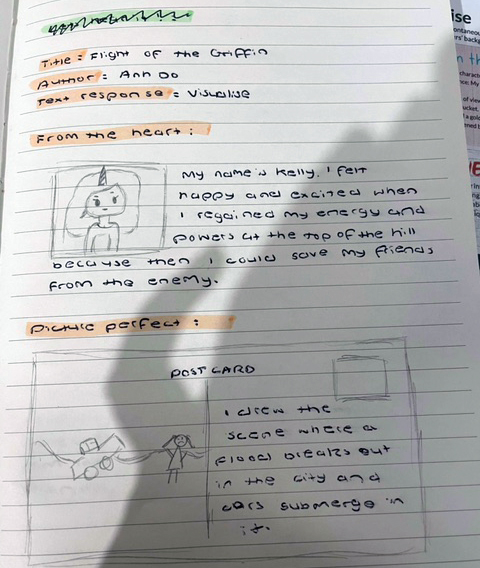 Title: Flight of the Griffin
Author: Anh Do
Text response: Visualise
From the heart:
My name is Kelly. I felt
happy and excited when
I regained my energy and
powers at the top of the hill
because then I could save my friends
from the enemy.
Picture perfect:
POSTCARD
I drew the
scene where a
flood breaks out
in the city and
cars submerge in
it.